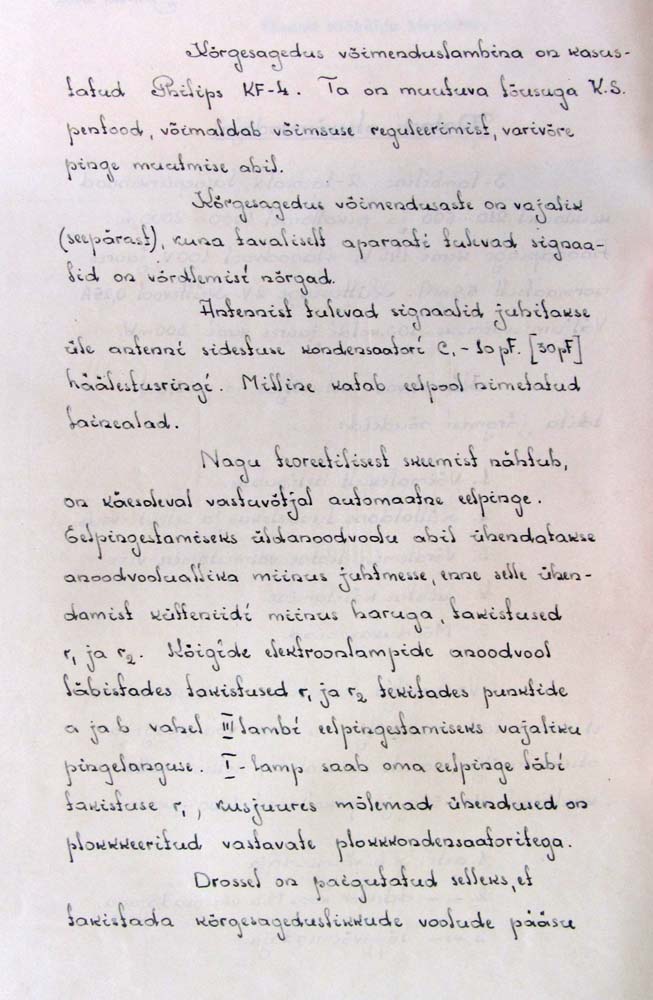 Kõrgesagedus võimenduslambina on kasus-
tatud Philips KF-4. Ta on muutuva tõusuga K.S.
pentood, võimaldab võimsuse reguleerimist, varivõre
pinge muutmise abil.
Kõrgesagedus võimendusaste on vajalik
(seepärast), kuna tavaliselt aparaati tulevad signaa-
lid on võrdlemisi nõrgad.
Antennist tulevad signaalid juhitakse
üle antenni sidestuse kondensaatori C₁ - 10 pF. [30 pF]
häälestusringi. Milline katab eelpool nimetatud
lainealad.
Nagu teoreetilisest skeemist nähtub,
on käesoleval vastuvõtjal automaatne eelpinge.
Eelpingestamiseks üldanoodvoolu abil ühendatakse
anoodvooluallika miinus juhtmesse, enne selle ühen-
damist kütteniidi miinus haruga, takistused
r₁ ja r₂. Kõigide elektroonlampide anoodvool
läbistades takistused r₁ ja r₂ tekitades punktide
a ja b vahel III lambi eelpingestamiseks vajaliku
pingelanguse. I - lamp saab oma eelpinge läbi
takistuse r₁, kusjuures mõlemad ühendused on
plokkkeeritud vastavate plokkkondensaatoritega.
Drossel on paigutatud selleks, et
takistada kõrgesageduslikkude voolude pääsu